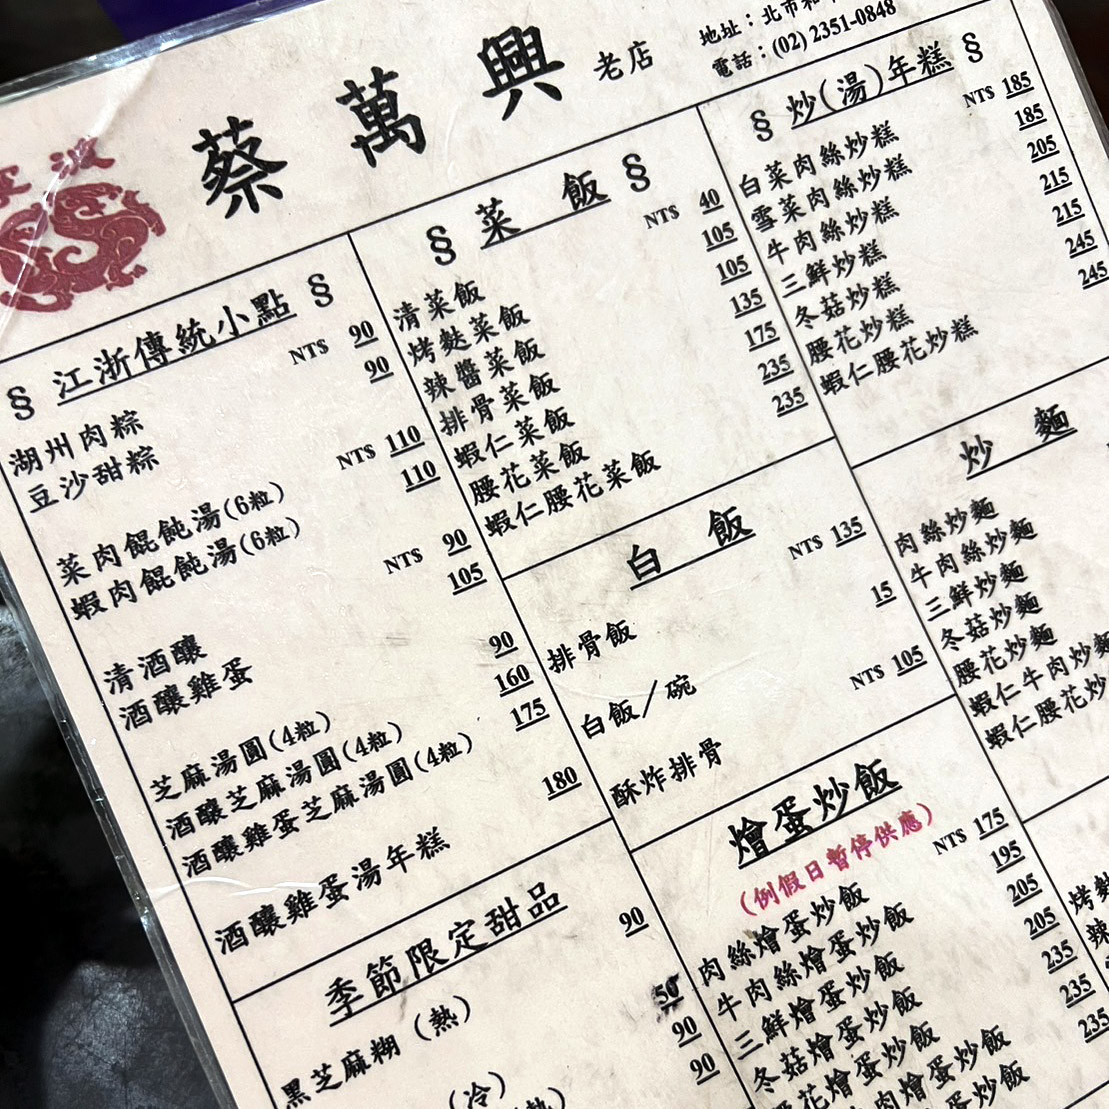 蔡萬興 老店
地址：北市和
電話：(02) 2351-0848
§ 江浙傳統小點 §
湖州肉粽 NT$ 90
豆沙甜粽 90
菜肉餛飩湯(6粒) NT$ 110
蝦肉餛飩湯(6粒) 110
清酒釀 NT$ 90
酒釀雞蛋 105
芝麻湯圓(4粒) 90
酒釀芝麻湯圓(4粒) 160
酒釀雞蛋芝麻湯圓(4粒) 175
酒釀雞蛋湯年糕 180
季節限定甜品
黑芝麻糊 (熱) 90
50
(冷) 90
90
§ 菜飯 §
清菜飯 NT$ 40
烤麩菜飯 105
辣醬菜飯 105
排骨菜飯 135
蝦仁菜飯 175
腰花菜飯 235
蝦仁腰花菜飯 235
白飯
排骨飯 NT$ 135
白飯／碗 15
酥炸排骨 NT$ 105
燴蛋炒飯
(例假日暫停供應)
肉絲燴蛋炒飯 NT$ 175
牛肉絲燴蛋炒飯 195
三鮮燴蛋炒飯 205
冬菇燴蛋炒飯 205
花燴蛋炒飯 235
肉燴蛋炒飯 235
蛋炒飯 235
§ 炒(湯)年糕 §
白菜肉絲炒糕 NT$ 185
雪菜肉絲炒糕 185
牛肉絲炒糕 205
三鮮炒糕 215
冬菇炒糕 215
腰花炒糕 245
蝦仁腰花炒糕 245
炒麵
肉絲炒麵
牛肉絲炒麵
三鮮炒麵
冬菇炒麵
腰花炒麵
蝦仁牛肉炒麵
蝦仁腰花炒
烤麩
辣